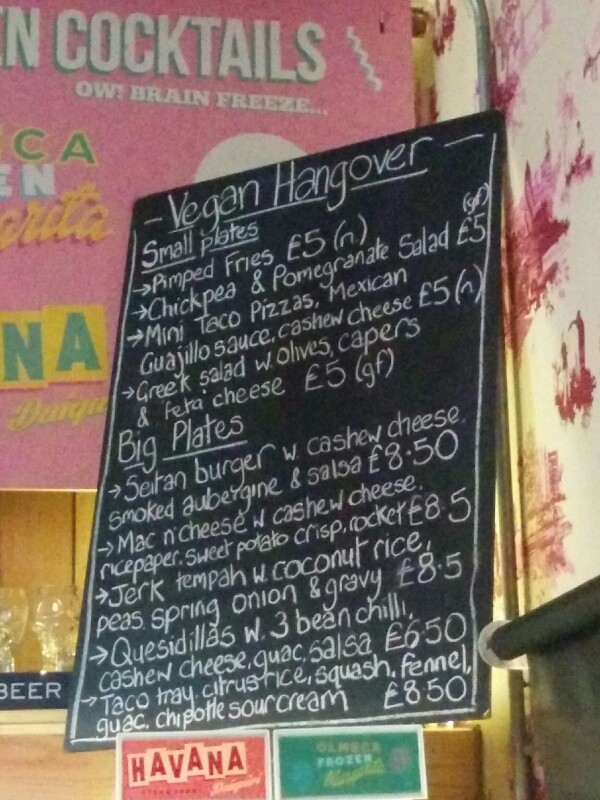 EN COCKTAILS
OW! BRAIN FREEZE...
MECA
EN
arita
NA
Daiqu
- Vegan Hangover -
Small plates
→Pimped Fries £5 (n)
→Chickpea & Pomegranate Salad £5 (gf)
→Mini Taco Pizzas, Mexican
Guajillo sauce, cashew cheese £5 (n)
→Greek salad w. olives, capers
& 'feta' cheese £5 (gf)
Big Plates
→Seitan burger w. cashew cheese.
smoked aubergine & salsa £8.50
→Mac n' cheese w cashew cheese.
ricepaper. sweet potato crisp, rocket £8.5
→Jerk tempah w. coconut rice,
peas, spring onion & gravy £8.5
→Quesidillas w. 3 bean chilli,
cashew cheese, guac, salsa £6.50
→Taco tray, citrus rice, squash, fennel,
guac. chipotle sour cream £8.50
BEER
HAVANA
Daiquiri
OLMECA
FROZEN
Margarita